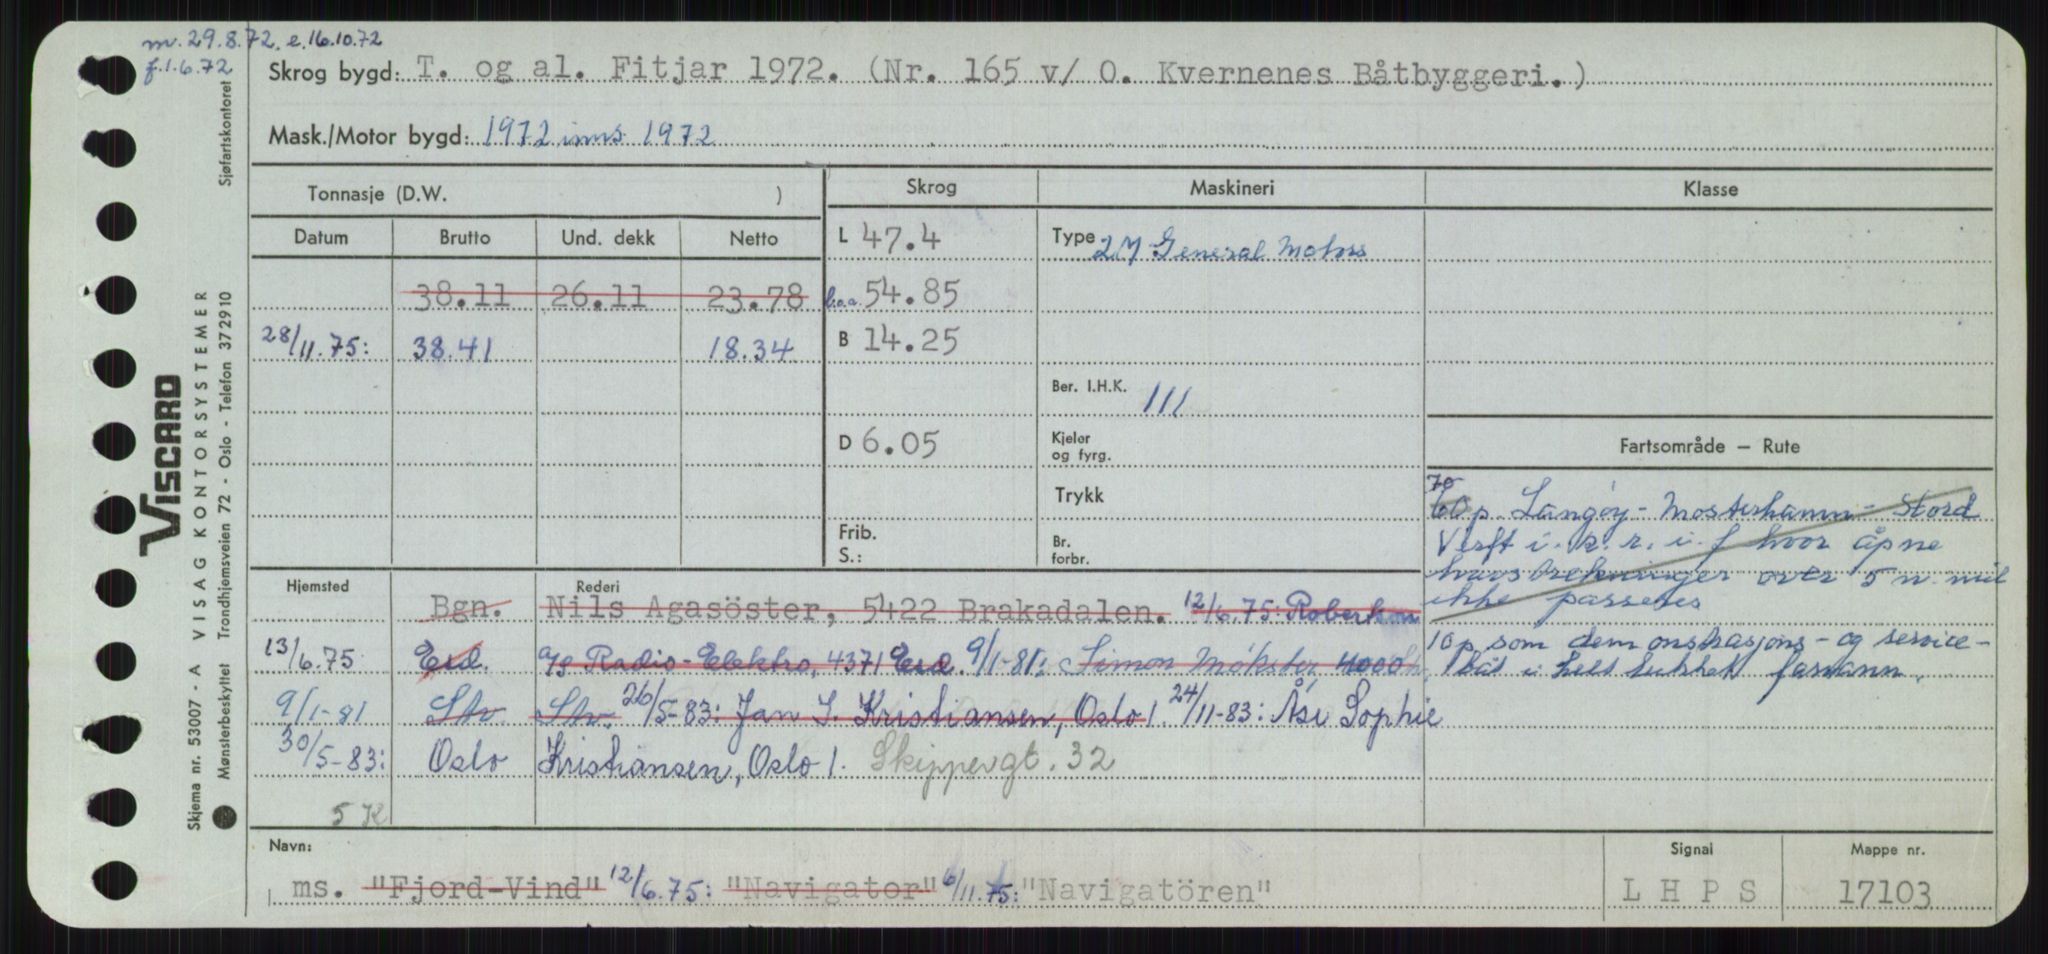 m. 29.8.72. e. 16.10.72
f. 1.6.72
Skrog bygd: T. og al. Fitjar 1972. (Nr. 165 v/ O. Kvernenes Båtbyggeri.)
Mask./Motor bygd: 1972 inns 1972
Tonnasje (D.W. )
Skrog
Maskineri
Klasse
Datum Brutto Und. dekk Netto
L 47.4
Type 2M General Motors
38.11 26.11 23.78
l.o.a. 54.85
28/11.75: 38.41 18.34
B 14.25
Ber. I.H.K. 111
D 6.05
Kjeler
og fyrg.
Fartsområde — Rute
Trykk
Frib.
S.:
Br.
forbr.
70
60 p. Langøy - Mosterhamn - Stord
Verft i. k. r. i. f hvor åpne
havstrekninger over 5 n. mil
ikke passeres
10 p som demonstrasjons- og service-
båt i helt lukket farvann.
Hjemsted
Rederi
Bgn. Nils Agasöster, 5422 Brakadalen. 12/6.75: Robertson
13/6.75 Eid. A/S Radio-Elektro, 4371 Eid. 9/1-81: Simon Møkster, 4000
9/1-81 Stv. Stv. 26/5-83: Jan S. Kristiansen, Oslo 1. 24/11-83: Åse Sophie
30/5-83: Oslo Kristiansen, Oslo 1. Skippergt. 32
5 K
Navn:
Signal
Mappe nr.
ms. "Fjord-Vind" 12/6.75: "Navigator" 6/11.75: "Navigatören"
L H P S
17103
Skjema nr. 53007 - A VISAG KONTORSYSTEMER Sjøfartskontoret
Mønsterbeskyttet Trondhjemsveien 72 - Oslo - Telefon 372910
VISCARD